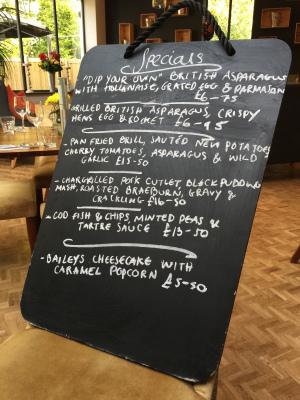 Specials
"DIP YOUR OWN" BRITISH ASPARAGUS
WITH HOLLANAISE, GRATED EGG & PARMASAN
£6-75
GRILLED BRITISH ASPARAGUS, CRISPY
HENS EGG & ROCKET £6-95
- PAN FRIED BRILL, SAUTED NEW POTATOES
CHERRY TOMATOES, ASPARAGUS & WILD
GARLIC £15-50
- CHARGRILLED PORK CUTLET BLACK PUDDING
MASH, ROASTED BRAEBURN, GRAVY &
CRACKLING £16-50
- COD FISH & CHIPS, MINTED PEAS &
TARTRE SAUCE £13-50
- BAILEYS CHEESECAKE WITH
CARAMEL POPCORN £5-50